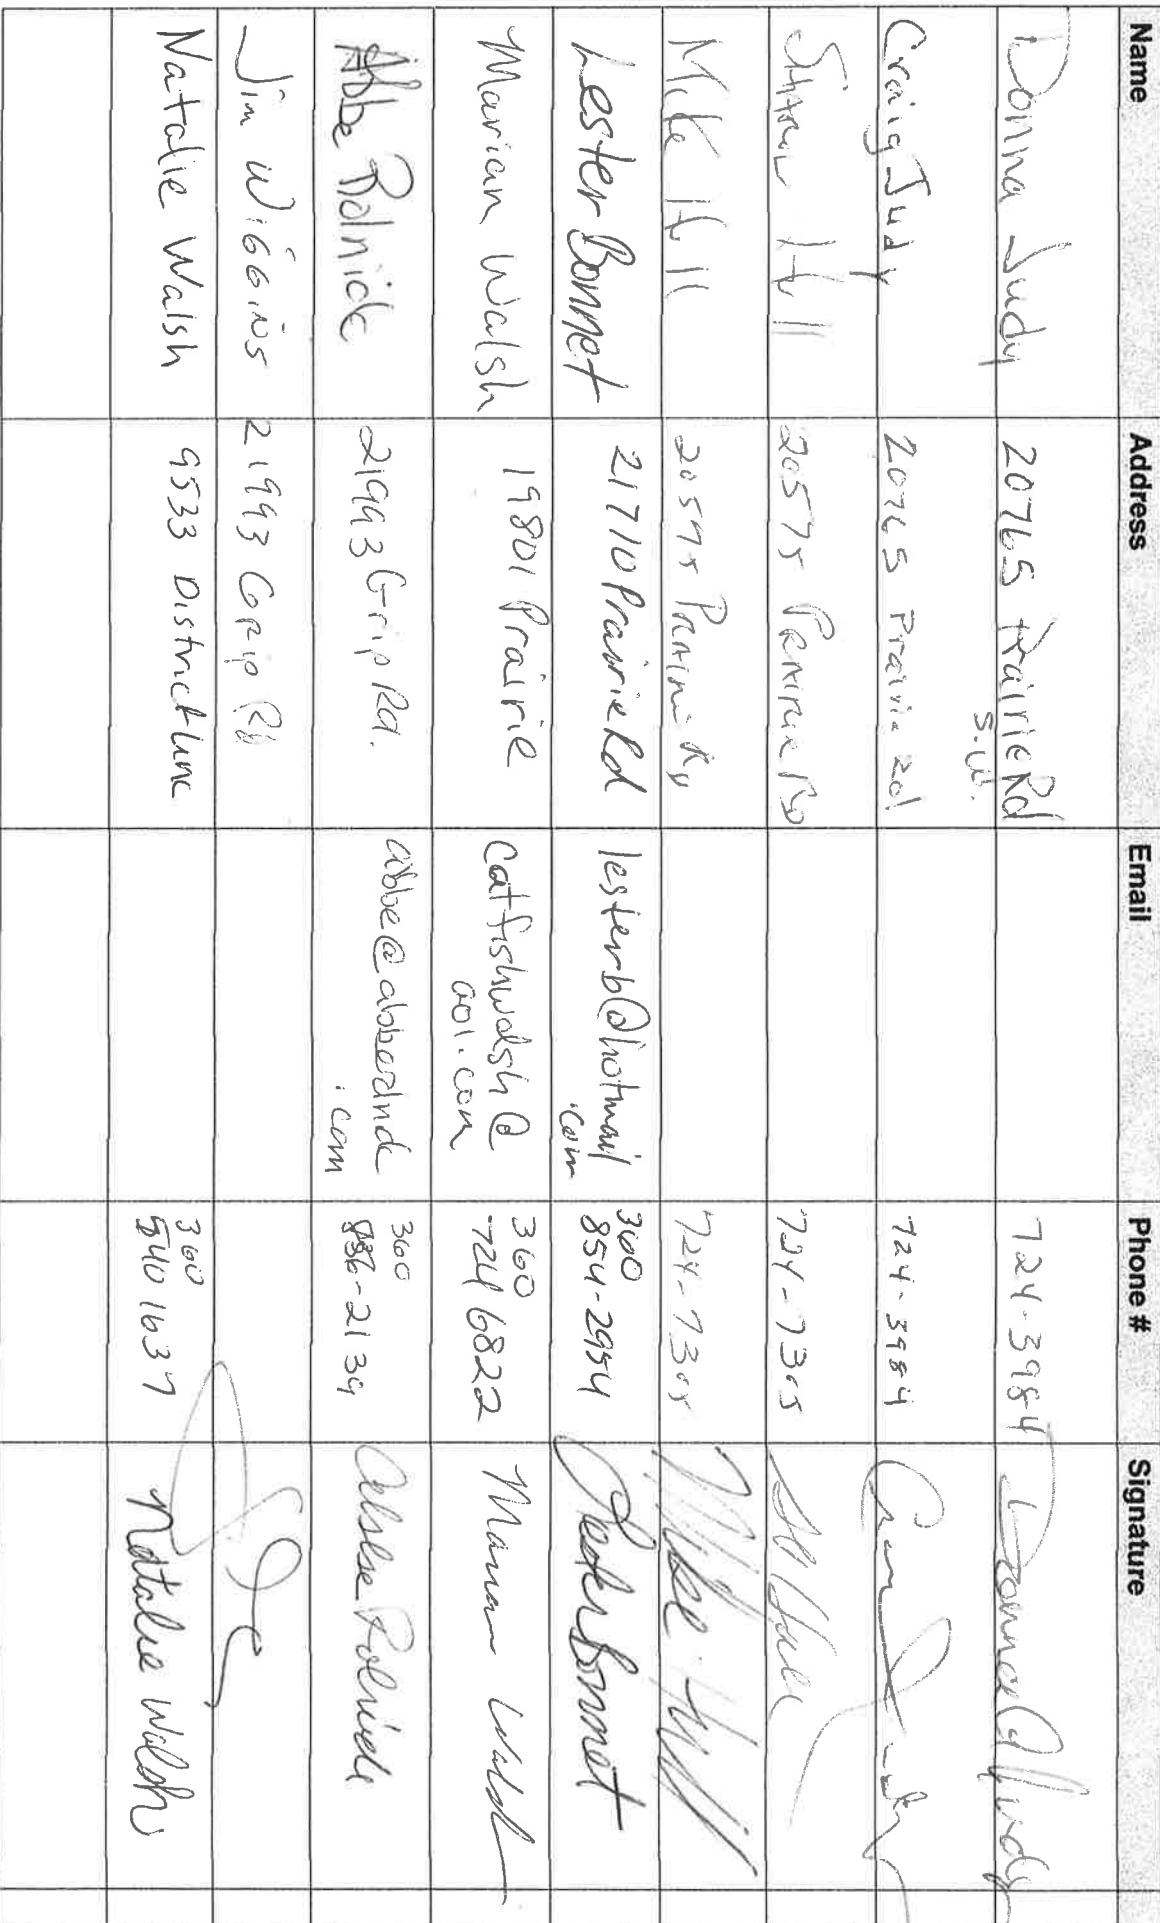 Name Address Email Phone # Signature
Donna Judy 20765 Prairie Rd 724-3984 Donna Judy
S.W.
Craig Judy 20765 Prairie Rd 724-3984
20575 Prairie Rd 724-7305
Mike Hill 20575 Prairie Rd 724-7305 Mike Hill
Lester Bonnet 21710 Prairie Rd lesterb@hotmail 360
.com 854-2954 Lester Bonnet
Marian Walsh 19801 Prairie catfishwalsh@ 360
aol.com 724 6822 Marian Walsh
Abbe Rolnick 21993 Grip Rd. abbe@abberolnick 360
.com 856-2139 Abbe Rolnick
Jim Wiggins 21993 Grip Rd
Natalie Walsh 9533 District Line 360
540 1637 Natalie Walsh